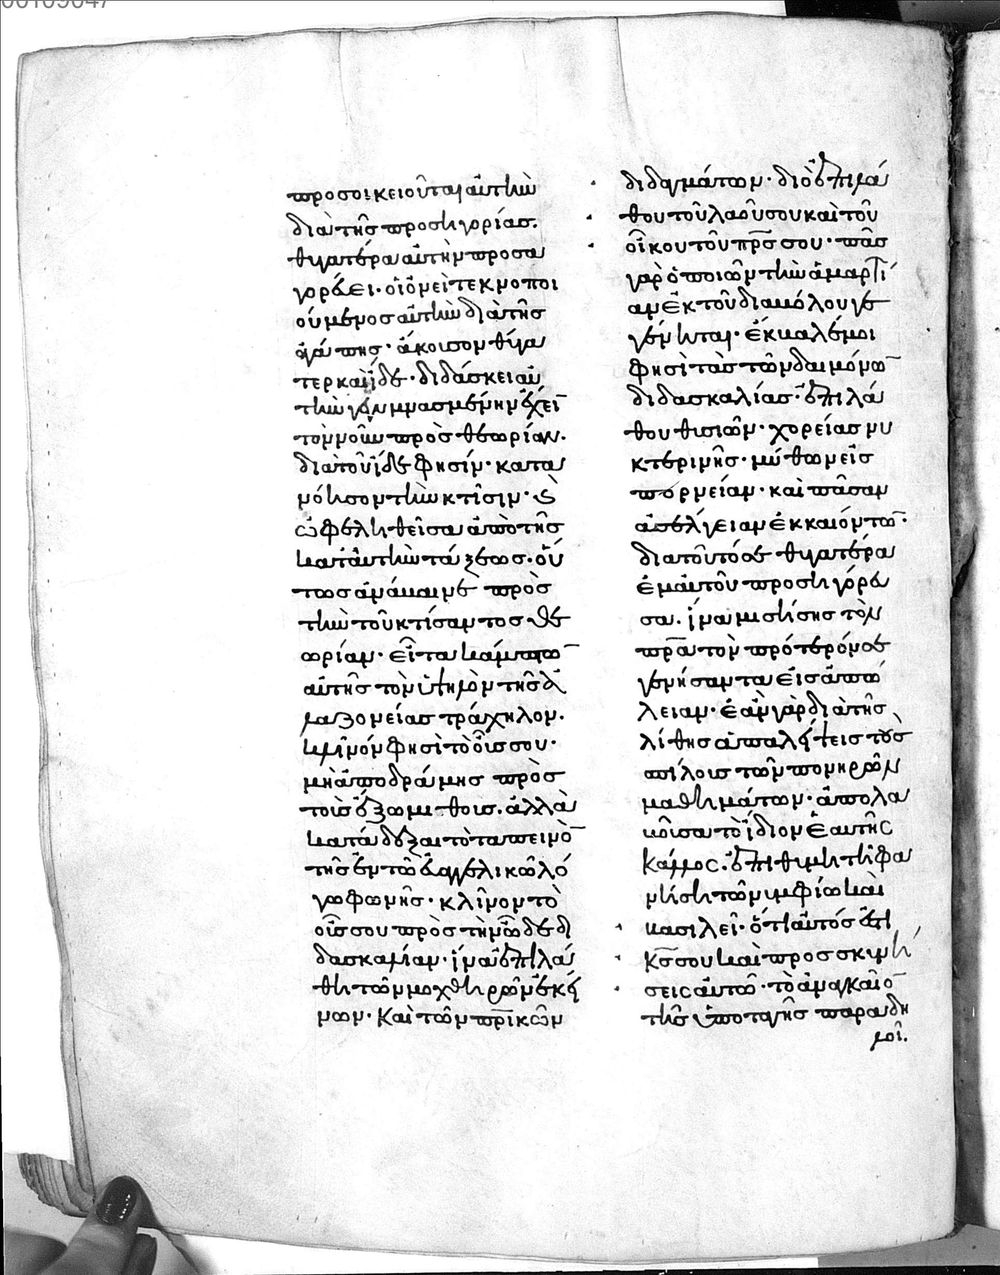 προσοικειοῦται αὐτὴν
διὰ τῆς προσηγορίας.
θυγατέρα αὐτὴν προσα
γορεύει· οἱονεὶ τεκνοποι
ούμενος αὐτὴν διὰ τῆς
ἀγάπης· ἄκουσον θύγα
τερ καὶ ἴδε· διδάσκει αὐ
τὴν γεγυμνασμένην ἔχειν
τὸν νοῦν πρὸς θεωρίαν.
διὰ τοῦ ἴδε φησίν· κατα
νόησον τὴν κτίσιν· καὶ
ὠφεληθεῖσα ἀπὸ τῆς
κατ αὐτὴν τάξεως· οὕ
τως ἀνάβαινε πρὸς
τὴν τοῦ κτίσαντος θε
ωρίαν· εἶτα κάμπτων
αὐτῆς τὸν ὑψηλὸν τῆς ἀ
λαζονείας τράχηλον.
κλῖνόν φησι τὸ οὖς σου·
μὴ ἀποδράμῃς πρὸς
τοὺς ἔξω μύθους. ἀλλὰ
κατάδεξαι τὸ ταπεινὸν
τῆς ἐν τῶ εὐαγγελικῶ λό
γω φωνῆς· κλῖνον τὸ
οὖς σου πρὸς τὴν ὧδε δι
δασκαλίαν· ἵνα ἐπιλά
θη τῶν μοχθηρῶν ἐκεί
νων· καὶ τῶν πρικῶν
διδαγμάτων· διὸ ἐπιλά
θου τοῦ λαοῦ σου καὶ τοῦ
οἴκου τοῦ πρς σου· πᾶς
γὰρ ὁ ποιῶν τὴν ἁμαρτί
αν ἐκ τοῦ διαβόλου γε
γένηται· ἐκβαλέ μοι
φησὶ τὰς τῶν δαιμόνων
διδασκαλίας· ἐπιλά
θου θυσιῶν· χορείας νυ
κτερινῆς· μύθων εἰς
πορνείαν· καὶ πᾶσαν
ἀσέλγειαν ἐκκαιόντων·
διὰ τοῦτό σε θυγατέρα
ἐμαυτοῦ προσηγόρευ
σα. ἵνα μισήσης τὸν
πρα τὸν πρότερόν σε
γεννήσαντα εἰς ἀπώ
λειαν· ἐὰν γὰρ διὰ τῆς
λήθης ἀπαλείψεις τοὺς
σπίλους τῶν πονηρῶν
μαθημάτων· ἀπολα
βοῦσα τὸ ἴδιον ἑαυτῆς
κάλλος· ἐπιθυμητὴ φα
νήση τῶ νυμφίω καὶ
βασιλεῖ· ὅτι αὐτός ἐστι
κς σου καὶ προσκυνή
σεις αὐτῶ· τὸ ἀναγκαῖον
τῆς ὑποταγῆς παραδη
λοῖ.